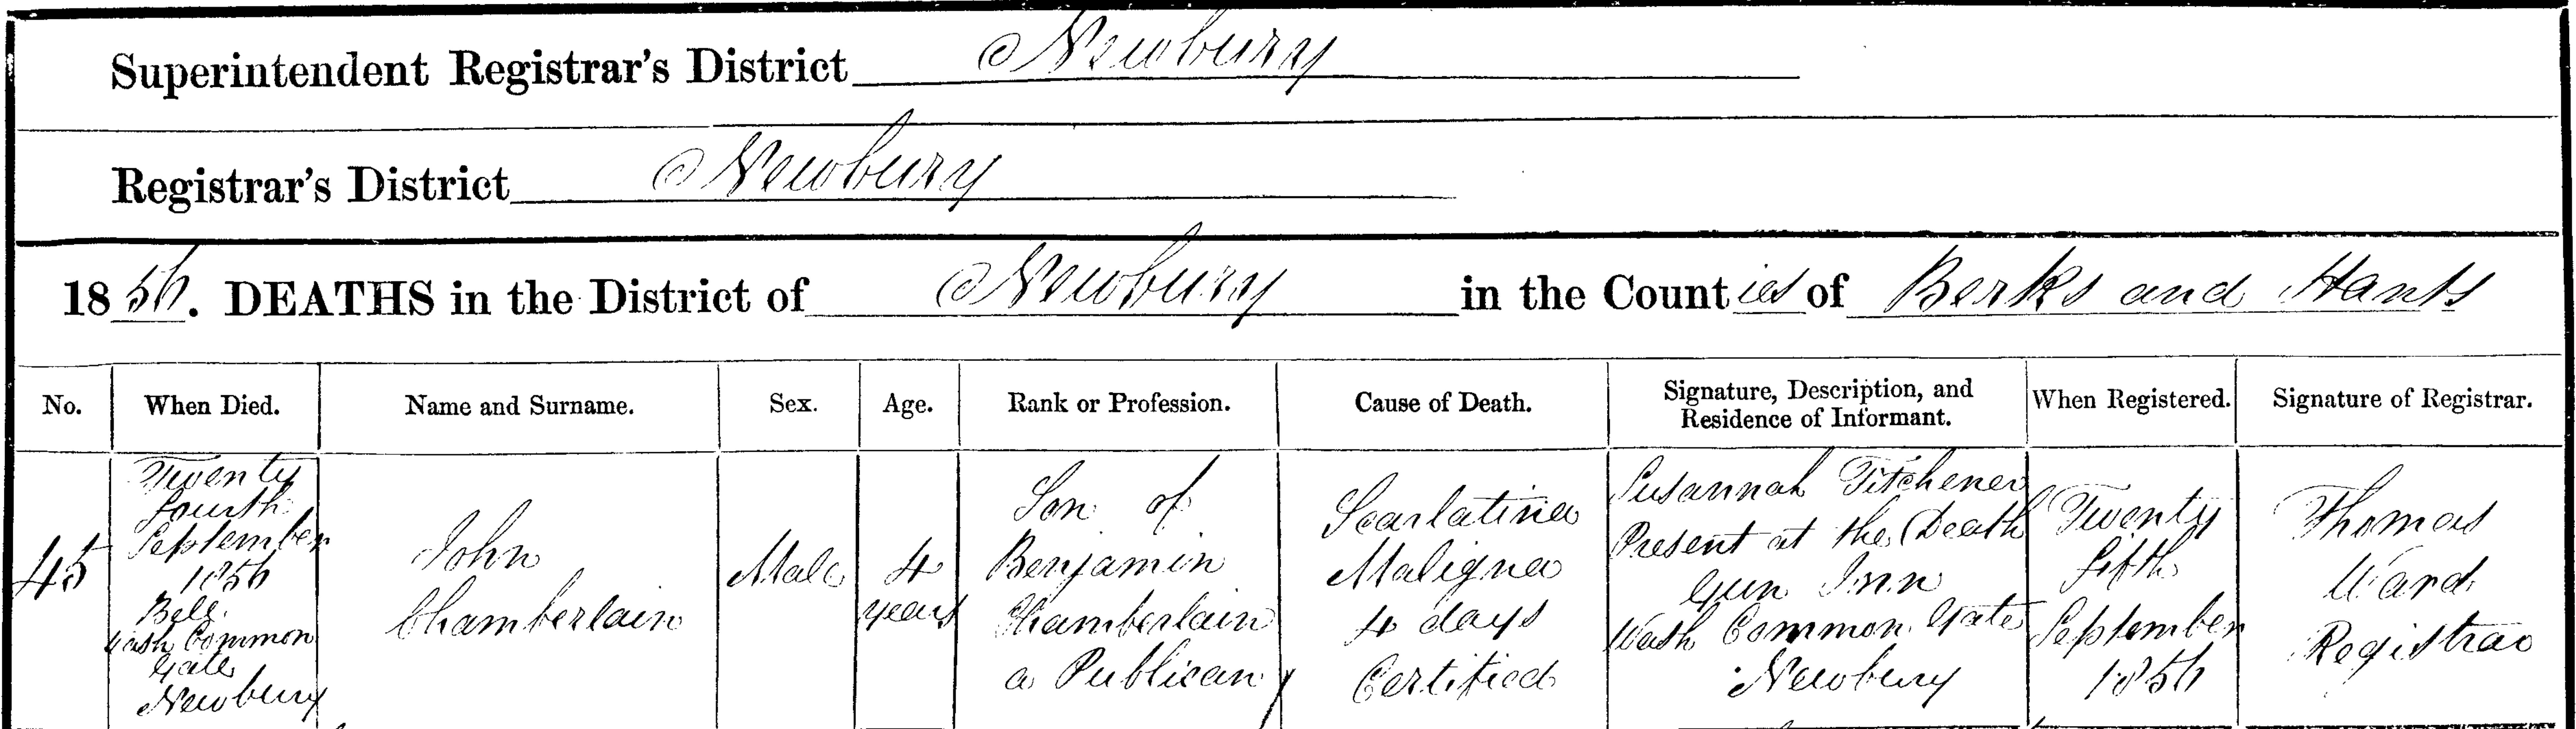 Superintendent Registrar's District Newbury
Registrar's District Newbury
1856. DEATHS in the District of Newbury in the Counties of Berks and Hants
No.
When Died.
Name and Surname.
Sex.
Age.
Rank or Profession.
Cause of Death.
Signature, Description, and
Residence of Informant.
When Registered.
Signature of Registrar.
45
Twenty
fourth
September
1856
Bell
Wash Common
Gate
Newbury
John
Chamberlain
Male
4
years
Son of
Benjamin
Chamberlain
a Publican
Scarlatina
Maligna
4 days
Certified
Susannah Titchener
Present at the Death
Gun Inn
Wash Common Gate
Newbury
Twenty
fifth
September
1856
Thomas
Ward
Registrar